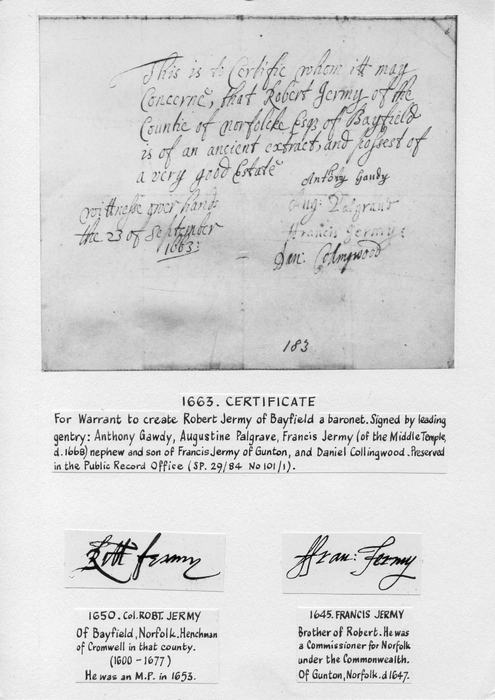 This is to Certifie whom itt may
Concerne, that Robert Jermy of the
Countie of norfolcke Esqr of Bayfield
is of an ancient extract, and possest of
a very good Estate
Anthony Gawdy
wittnesse ower hands
Aug: Palgrave
the 23 of September
Francis Jermy:
1663:
Dan: Colingwood
183
1663. CERTIFICATE
For Warrant to create Robert Jermy of Bayfield a baronet. Signed by leading
gentry: Anthony Gawdy, Augustine Palgrave, Francis Jermy (of the Middle Temple,
d.1668) nephew and son of Francis Jermy of Gunton, and Daniel Collingwood. Preserved
in the Public Record Office (SP. 29/84 No 101/1).
Robt Jermy
ffran: Jermy
1650. Col. ROBT. JERMY
Of Bayfield, Norfolk. Henchman
of Cromwell in that county.
(1600 - 1677)
He was an M.P. in 1653.
1645. FRANCIS JERMY
Brother of Robert. He was
a Commissioner for Norfolk
under the Commonwealth.
Of Gunton, Norfolk. d 1647.